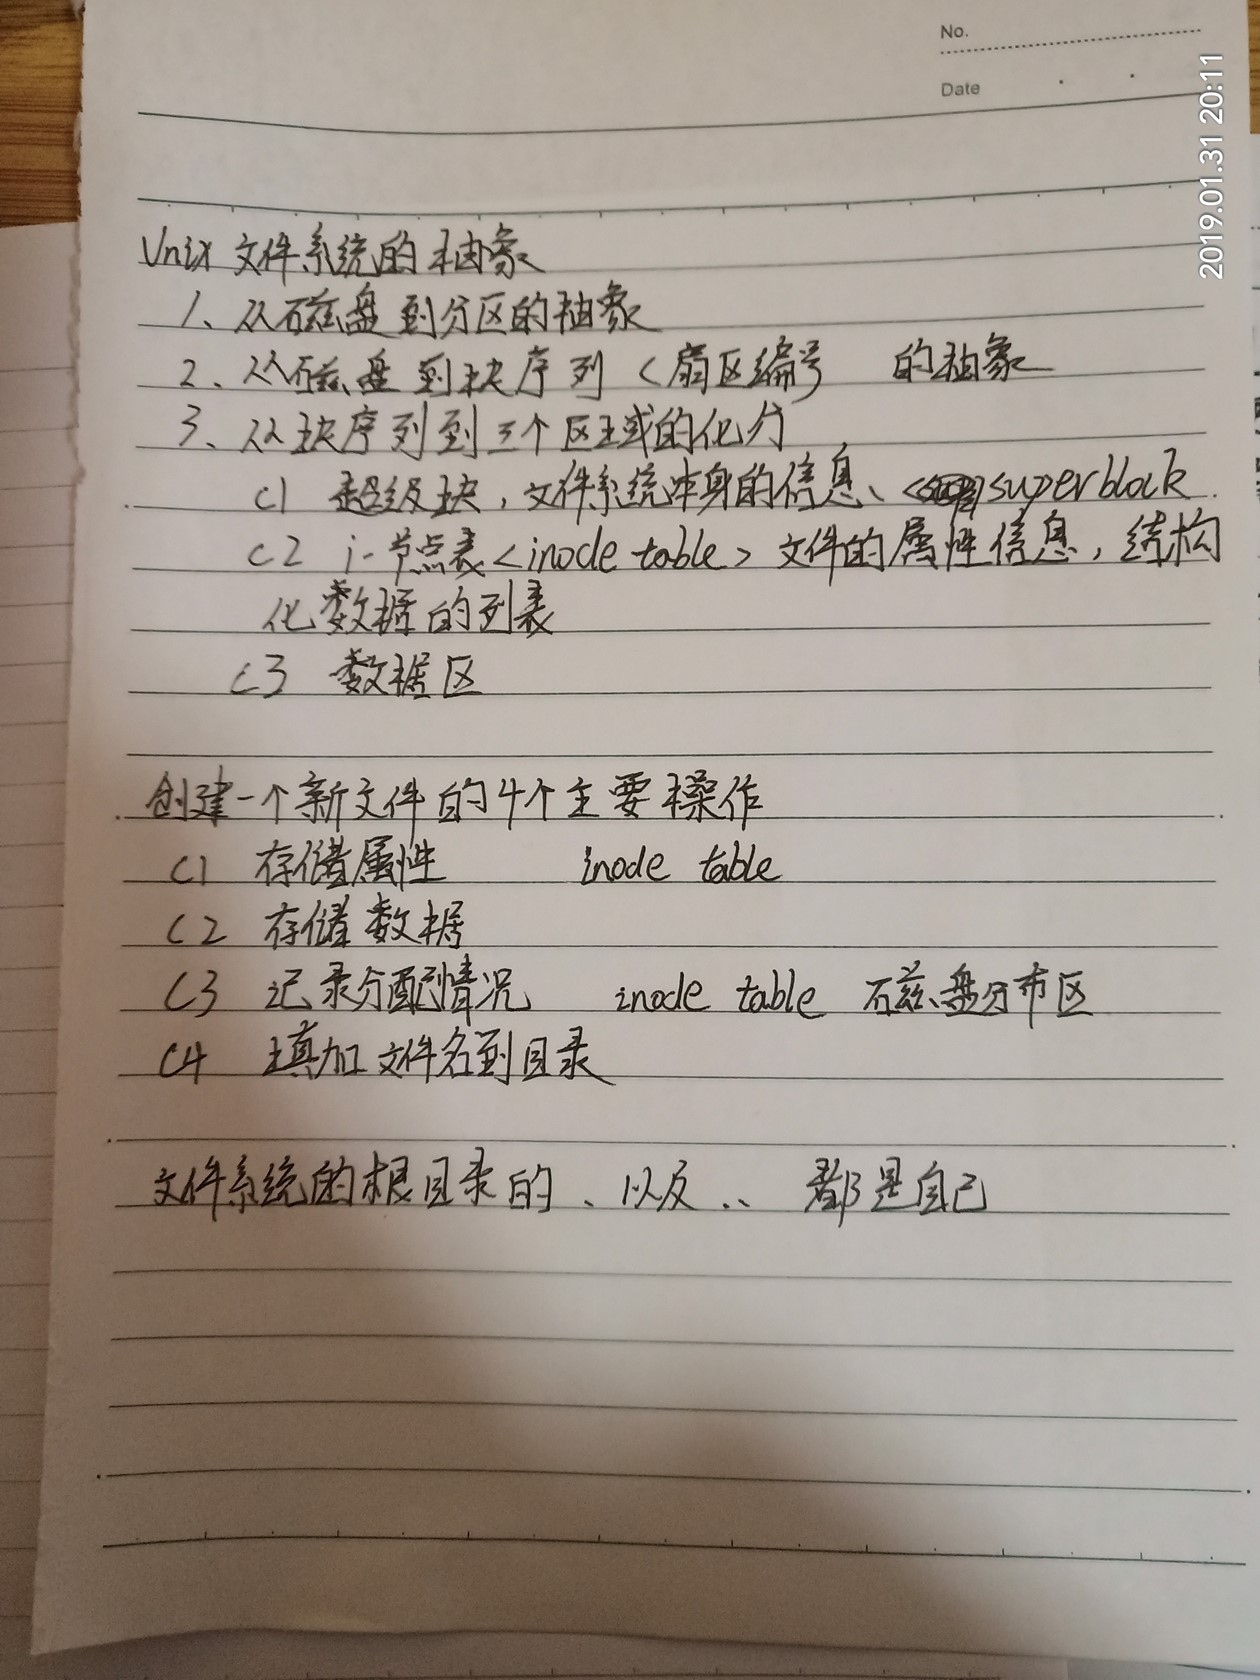 No.
Date
2019.01.31 20:11
Unix 文件系统的抽象
1、从磁盘到分区的抽象
2、从磁盘到块序列 <扇区编号 的抽象
3、从块序列到三个区域的化分
C1 超级块，文件系统本身的信息、< superblock
C2 i-节点表<inode table> 文件的属性信息，结构
化数据的列表
C3 数据区
创建一个新文件的4个主要操作
C1 存储属性 inode table
C2 存储数据
C3 记录分配情况 inode table 磁盘分布区
C4 填加文件名到目录
文件系统的根目录的 、以及 .. 都是自己